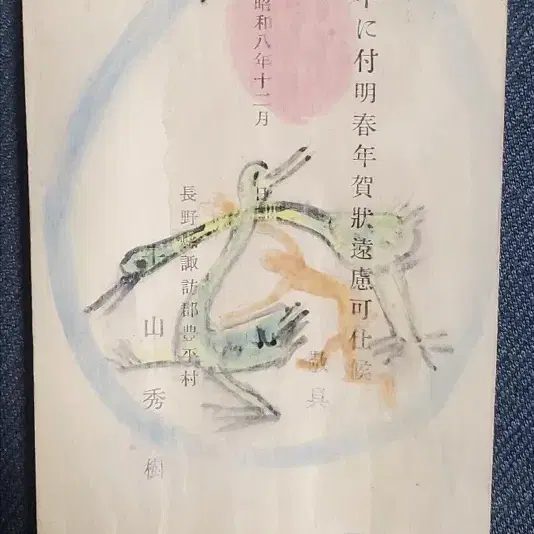 に付明春年賀狀遠慮可仕候
敬具
昭和八年十二月
日
長野縣諏訪郡豊平村
山秀樹